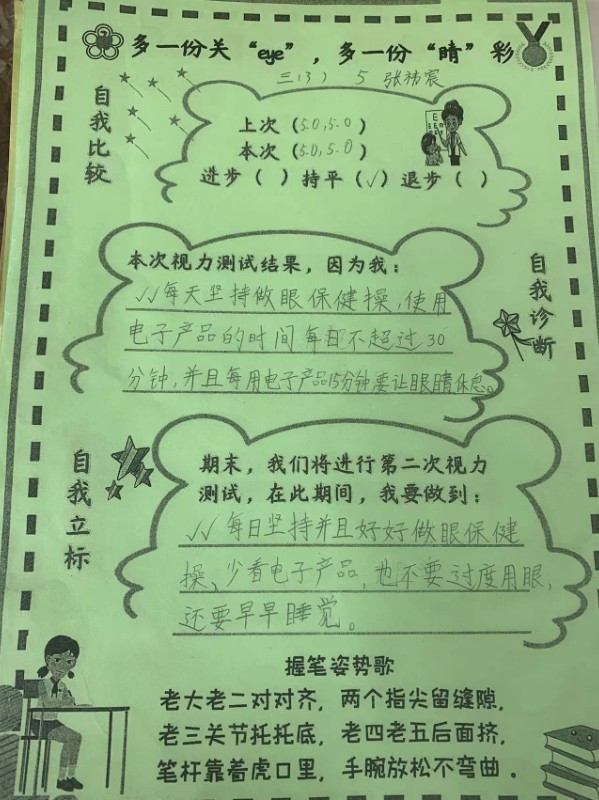 多一份关“eye”，多一份“睛”彩
三（3） 5 张祎宸
自我比较
上次（5.0,5.0）
本次（5.0,5.0）
进步（ ）持平（√）退步（ ）
本次视力测试结果，因为我：
√√每天坚持做眼保健操,使用
电子产品的时间每日不超过30
分钟,并且每用电子产品15分钟要让眼睛休息。
自我诊断
自我立标
期末，我们将进行第二次视力
测试，在此期间，我要做到：
√√每日坚持并且好好做眼保健
操、少看电子产品,也不要过度用眼,
还要早早睡觉。
握笔姿势歌
老大老二对对齐，两个指尖留缝隙,
老三关节托托底，老四老五后面挤,
笔杆靠着虎口里，手腕放松不弯曲。
E